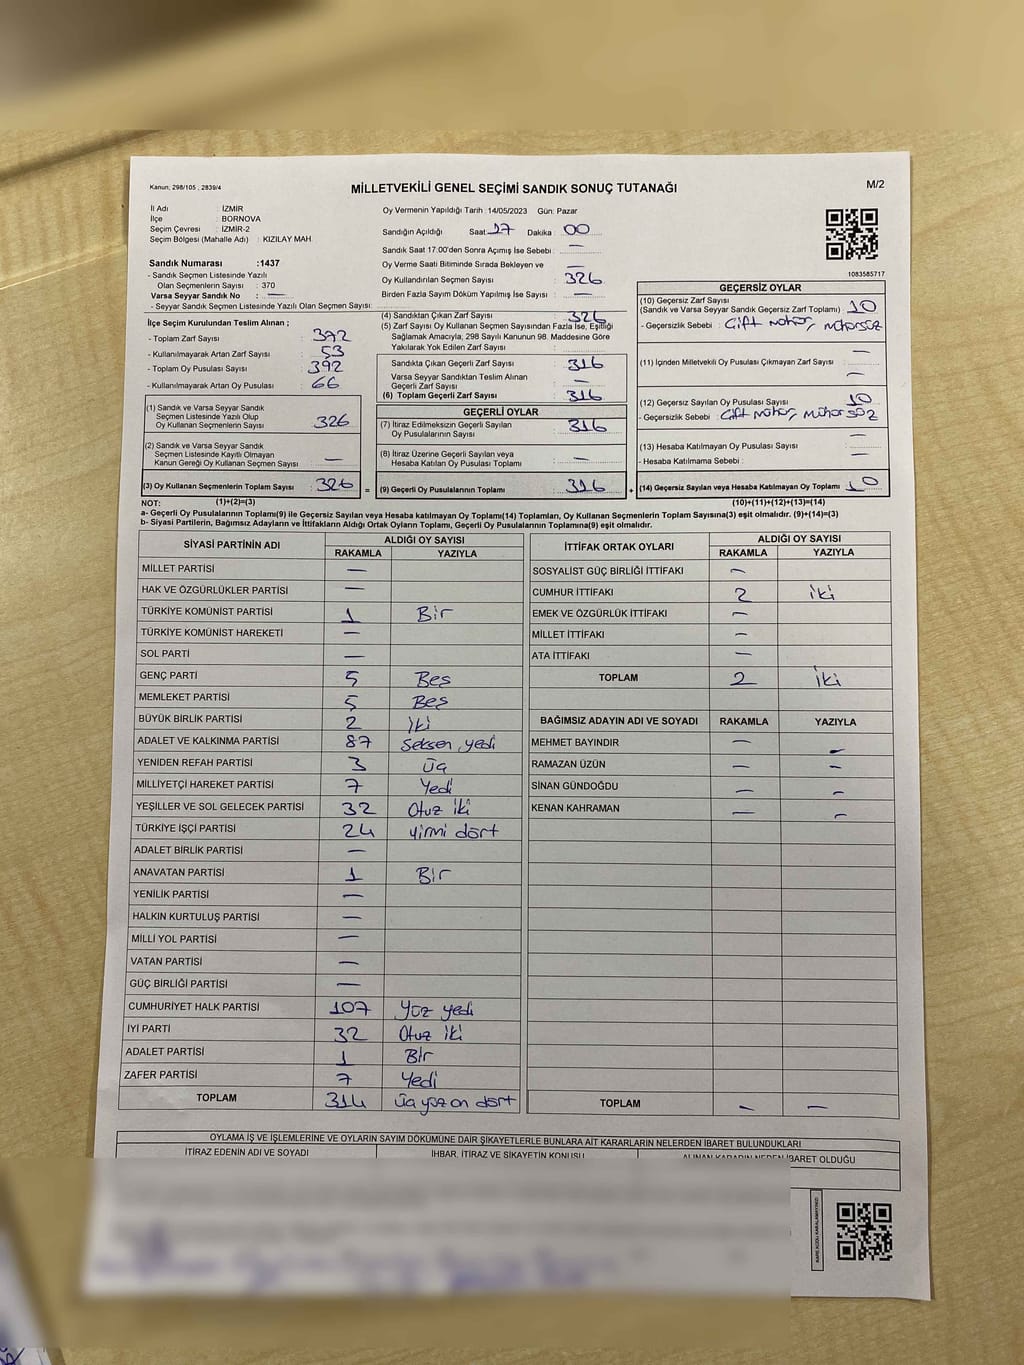 Kanun; 298/105 , 2839/4
MİLLETVEKİLİ GENEL SEÇİMİ SANDIK SONUÇ TUTANAĞI
M/2
İl Adı : İZMİR
İlçe : BORNOVA
Seçim Çevresi : İZMİR-2
Seçim Bölgesi (Mahalle Adı) : KIZILAY MAH
Sandık Numarası :1437
- Sandık Seçmen Listesinde Yazılı
Olan Seçmenlerin Sayısı : 370
Varsa Seyyar Sandık No : —
- Seyyar Sandık Seçmen Listesinde Yazılı Olan Seçmen Sayısı:
İlçe Seçim Kurulundan Teslim Alınan ;
- Toplam Zarf Sayısı : 392
- Kullanılmayarak Artan Zarf Sayısı : 53
- Toplam Oy Pusulası Sayısı : 392
- Kullanılmayarak Artan Oy Pusulası : 66
(1) Sandık ve Varsa Seyyar Sandık
Seçmen Listesinde Yazılı Olup
Oy Kullanan Seçmenlerin Sayısı 326
(2) Sandık ve Varsa Seyyar Sandık
Seçmen Listesinde Kayıtlı Olmayan
Kanun Gereği Oy Kullanan Seçmen Sayısı —
(3) Oy Kullanan Seçmenlerin Toplam Sayısı 326
Oy Vermenin Yapıldığı Tarih :14/05/2023 Gün: Pazar
Sandığın Açıldığı Saat: 17 Dakika : 00
Sandık Saat 17:00'den Sonra Açımış İse Sebebi : —
Oy Verme Saati Bitiminde Sırada Bekleyen ve —
Oy Kullandırılan Seçmen Sayısı : 326
Birden Fazla Sayım Döküm Yapılmış İse Sayısı : —
(4) Sandıktan Çıkan Zarf Sayısı : 326
(5) Zarf Sayısı Oy Kullanan Seçmen Sayısından Fazla İse, Eşitliği
Sağlamak Amacıyla, 298 Sayılı Kanunun 98. Maddesine Göre
Yakılarak Yok Edilen Zarf Sayısı :
Sandıkta Çıkan Geçerli Zarf Sayısı : 316
Varsa Seyyar Sandıktan Teslim Alınan
Geçerli Zarf Sayısı : —
(6) Toplam Geçerli Zarf Sayısı : 316
GEÇERLİ OYLAR
(7) İtiraz Edilmeksizin Geçerli Sayılan : 316
Oy Pusulalarının Sayısı
(8) İtiraz Üzerine Geçerli Sayılan veya : —
Hesaba Katılan Oy Pusulası Toplamı
= (9) Geçerli Oy Pusulalarının Toplamı : 316
1083585717
GEÇERSİZ OYLAR
(10) Geçersiz Zarf Sayısı
(Sandık ve Varsa Seyyar Sandık Geçersiz Zarf Toplamı) : 10
- Geçersizlik Sebebi : Çift mühür, mühürsüz
—
(11) İçinden Milletvekili Oy Pusulası Çıkmayan Zarf Sayısı :
—
(12) Geçersiz Sayılan Oy Pusulası Sayısı : 10
- Geçersizlik Sebebi : Çift mühür, mühürsüz
(13) Hesaba Katılmayan Oy Pusulası Sayısı : —
- Hesaba Katılmama Sebebi : —
+ (14) Geçersiz Sayılan veya Hesaba Katılmayan Oy Toplamı : 10
NOT: (1)+(2)=(3) (10)+(11)+(12)+(13)=(14)
a- Geçerli Oy Pusulalarının Toplamı(9) ile Geçersiz Sayılan veya Hesaba katılmayan Oy Toplamı(14) Toplamları, Oy Kullanan Seçmenlerin Toplam Sayısına(3) eşit olmalıdır. (9)+(14)=(3)
b- Siyasi Partilerin, Bağımsız Adayların ve İttifakların Aldığı Ortak Oyların Toplamı, Geçerli Oy Pusulalarının Toplamına(9) eşit olmalıdır.
SİYASİ PARTİNİN ADI ALDIĞI OY SAYISI
RAKAMLA YAZIYLA
MİLLET PARTİSİ —
HAK VE ÖZGÜRLÜKLER PARTİSİ —
TÜRKİYE KOMÜNİST PARTİSİ 1 Bir
TÜRKİYE KOMÜNİST HAREKETİ —
SOL PARTİ —
GENÇ PARTİ 5 Beş
MEMLEKET PARTİSİ 5 Beş
BÜYÜK BİRLİK PARTİSİ 2 İki
ADALET VE KALKINMA PARTİSİ 87 Seksen yedi
YENİDEN REFAH PARTİSİ 3 Üç
MİLLİYETÇİ HAREKET PARTİSİ 7 Yedi
YEŞİLLER VE SOL GELECEK PARTİSİ 32 Otuz iki
TÜRKİYE İŞÇİ PARTİSİ 24 yirmi dört
ADALET BİRLİK PARTİSİ —
ANAVATAN PARTİSİ 1 Bir
YENİLİK PARTİSİ —
HALKIN KURTULUŞ PARTİSİ —
MİLLİ YOL PARTİSİ —
VATAN PARTİSİ —
GÜÇ BİRLİĞİ PARTİSİ —
CUMHURİYET HALK PARTİSİ 107 Yüz yedi
İYİ PARTİ 32 Otuz iki
ADALET PARTİSİ 1 Bir
ZAFER PARTİSİ 7 Yedi
TOPLAM 314 üç yüz on dört
İTTİFAK ORTAK OYLARI ALDIĞI OY SAYISI
RAKAMLA YAZIYLA
SOSYALİST GÜÇ BİRLİĞİ İTTİFAKI —
CUMHUR İTTİFAKI 2 iki
EMEK VE ÖZGÜRLÜK İTTİFAKI —
MİLLET İTTİFAKI —
ATA İTTİFAKI —
TOPLAM 2 İki
BAĞIMSIZ ADAYIN ADI VE SOYADI RAKAMLA YAZIYLA
MEHMET BAYINDIR — —
RAMAZAN ÜZÜN — —
SİNAN GÜNDOĞDU — —
KENAN KAHRAMAN — —
TOPLAM — —
OYLAMA İŞ VE İŞLEMLERİNE VE OYLARIN SAYIM DÖKÜMÜNE DAİR ŞİKAYETLERLE BUNLARA AİT KARARLARIN NELERDEN İBARET BULUNDUKLARI
İTİRAZ EDENİN ADI VE SOYADI İHBAR, İTİRAZ VE ŞİKAYETİN KONUSU ALINAN KARARIN NEDEN İBARET OLDUĞU
KARE KODU KARALAMAYINIZ!